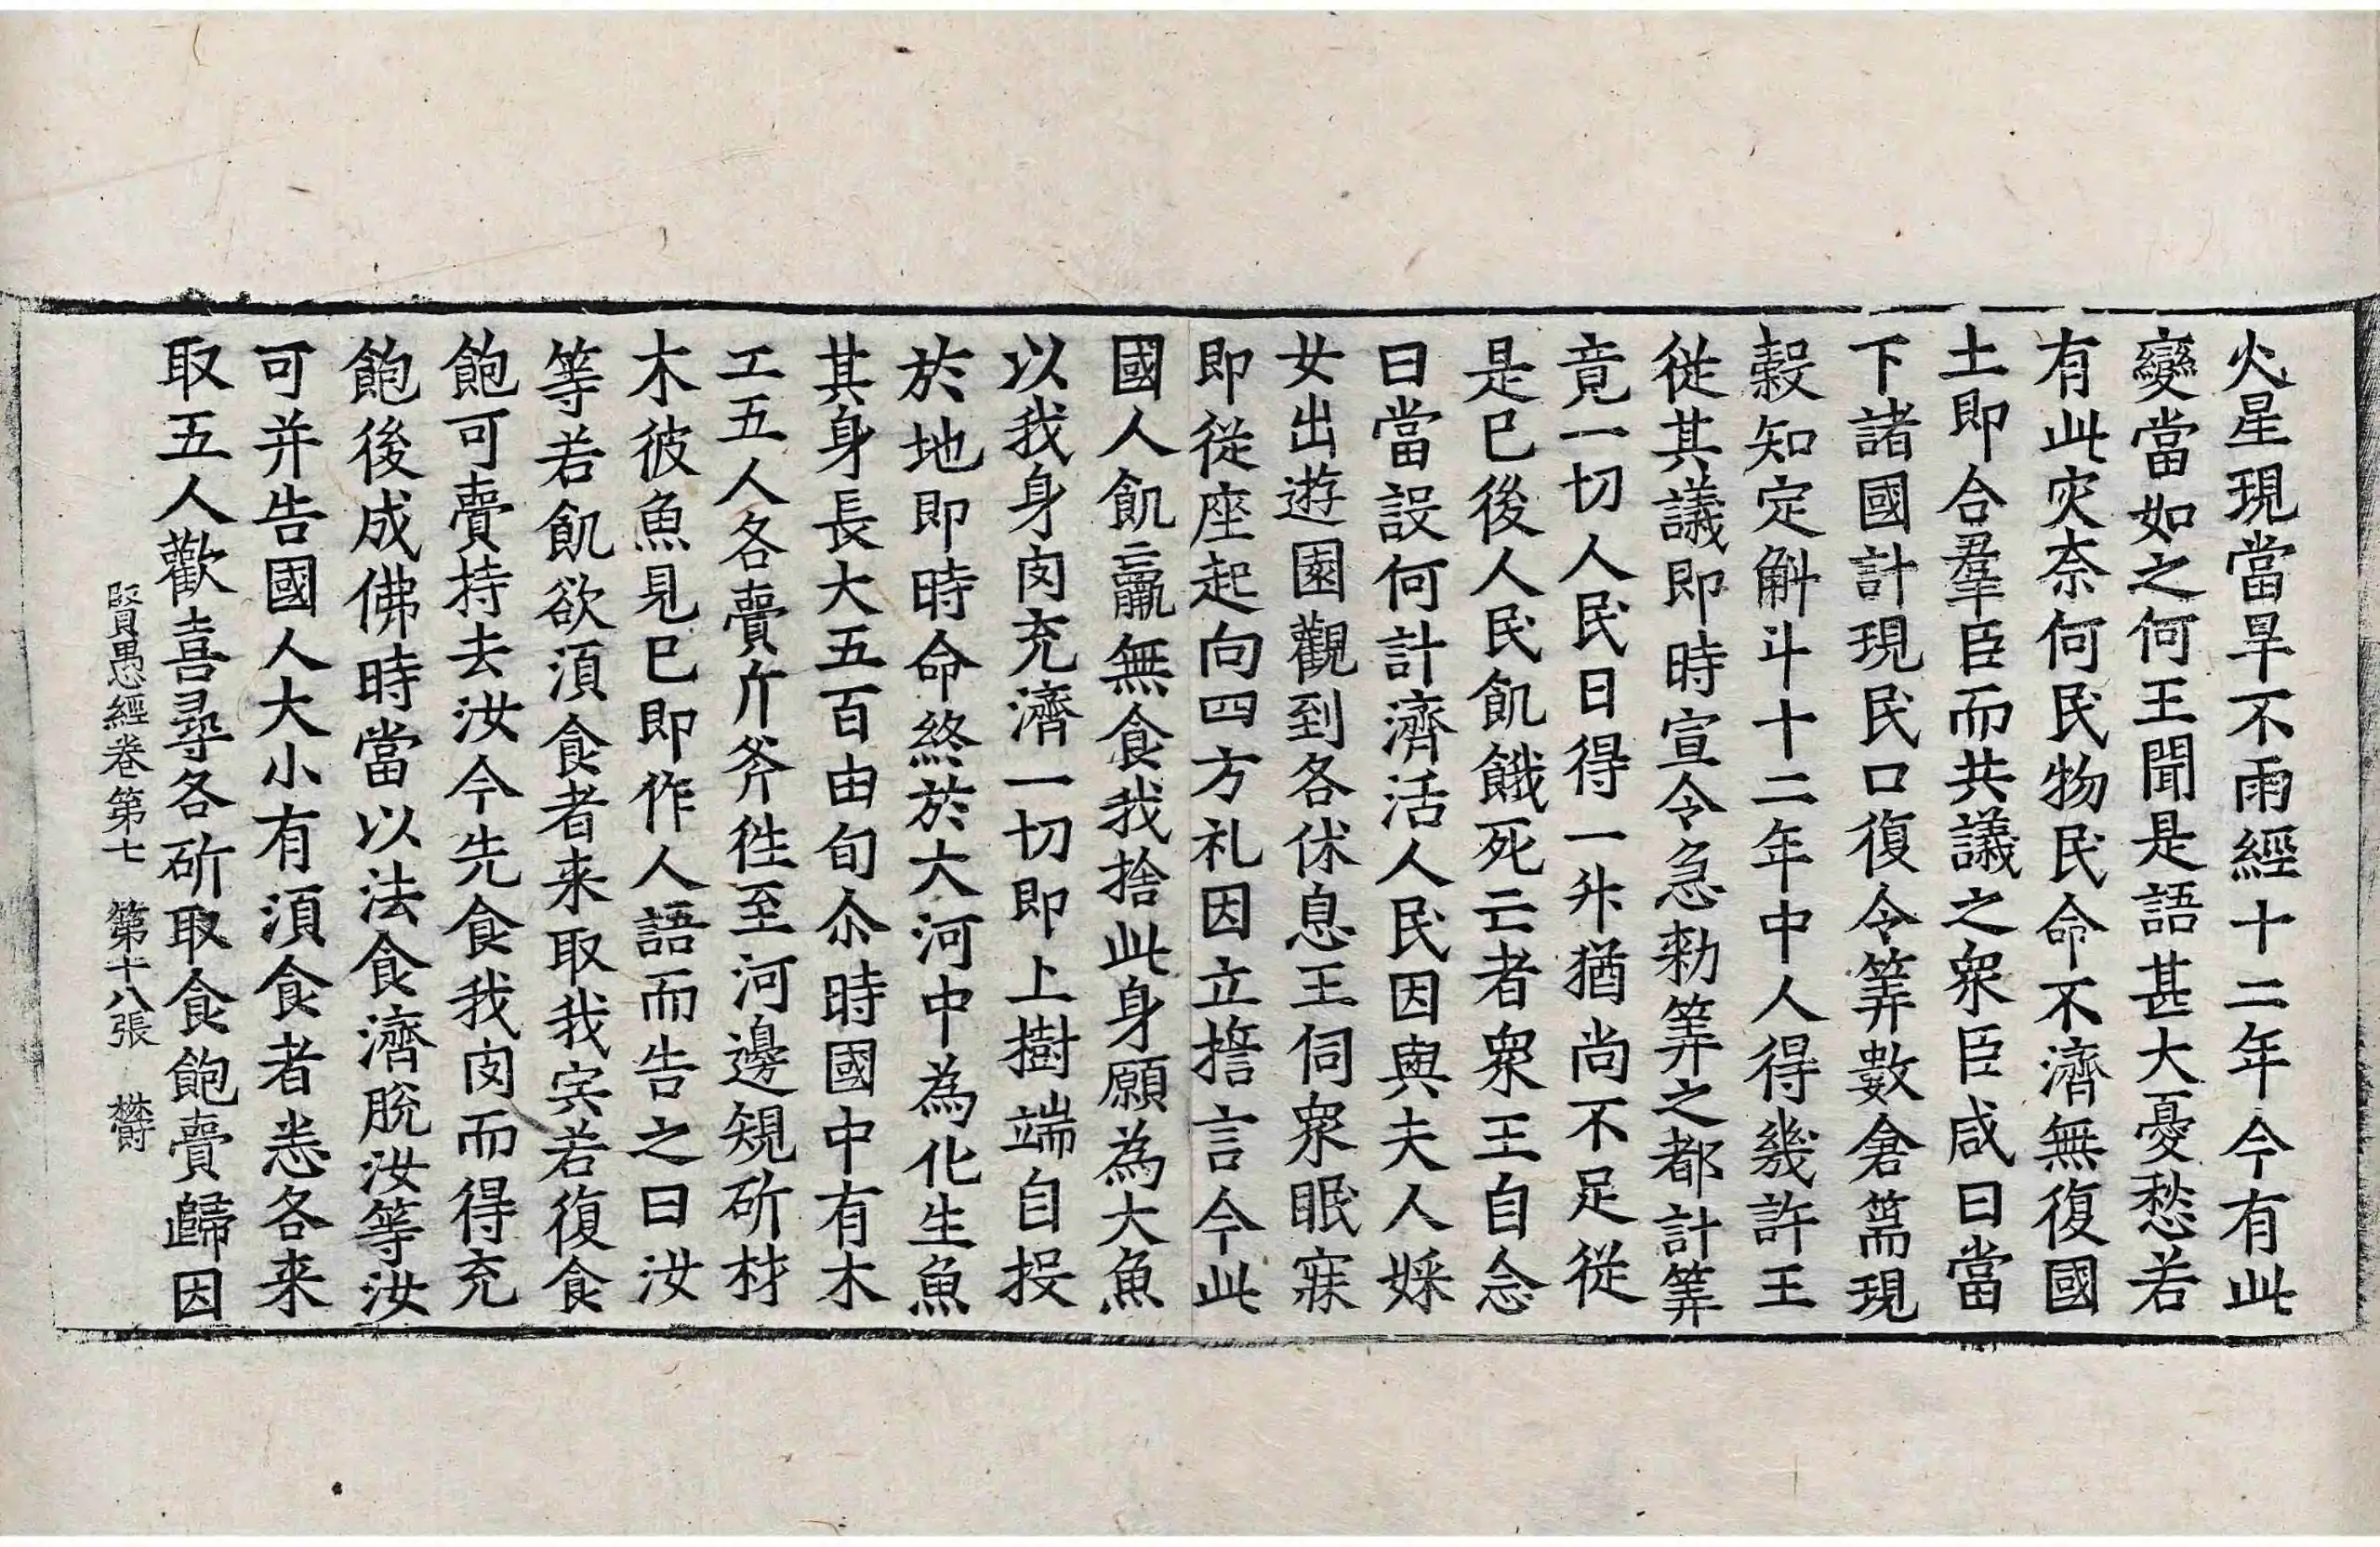 火星現當旱不雨經十二年今有此
變當如之何王聞是語甚大憂愁若
有此灾奈何民物民命不濟無復國
土即合羣臣而共議之衆臣咸曰當
下諸國計現民口復令筭數倉篅現
穀知定斛斗十二年中人得幾許王
從其議即時宣令急勑筭之都計筭
竟一切人民日得一升猶尚不足從
是已後人民飢餓死亡者衆王自念
曰當設何計濟活人民因與夫人婇
女出遊園觀到各休息王伺衆眠寐
即從座起向四方礼因立擔言今此
國人飢羸無食我捨此身願為大魚
以我身肉充濟一切即上樹端自投
於地即時命終於大河中為化生魚
其身長大五百由旬尒時國中有木
工五人各賷斤斧徃至河邊規斫材
木彼魚見已即作人語而告之曰汝
等若飢欲湏食者来取我宍若復食
飽可賷持去汝今先食我肉而得充
飽後成佛時當以法食濟脫汝等汝
可并告國人大小有湏食者恙各来
取五人歡喜尋各斫取食飽賷歸因
賢愚經卷第七 第十八張 欝